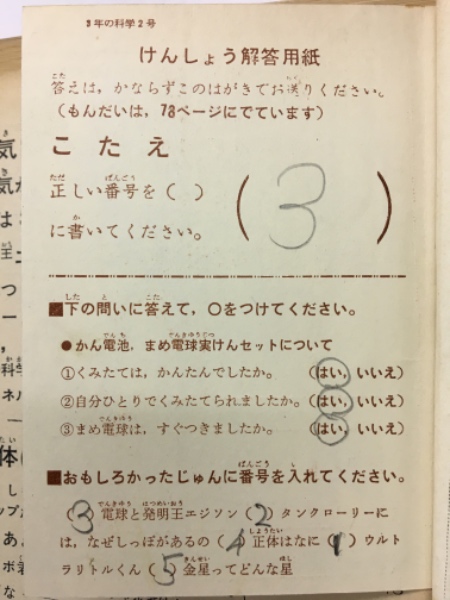 3年の科学2号
けんしょう解答用紙
答えは，かならずこのはがきでお送りください。
（もんだいは，78ページにでています）
こたえ
正しい番号を（　）
に書いてください。
（3）
■下の問いに答えて，○をつけてください。
●かん電池，まめ電球実けんセットについて
①くみたては，かんたんでしたか。（はい，いいえ）
②自分ひとりでくみたてられましたか。（はい，いいえ）
③まめ電球は，すぐつきましたか。（はい，いいえ）
■おもしろかったじゅんに番号を入れてください。
（3）電球と発明王エジソン（2）タンクローリーに
は，なぜしっぽがあるの（4）正体はなに（1）ウルト
ラリトルくん（5）金星ってどんな星